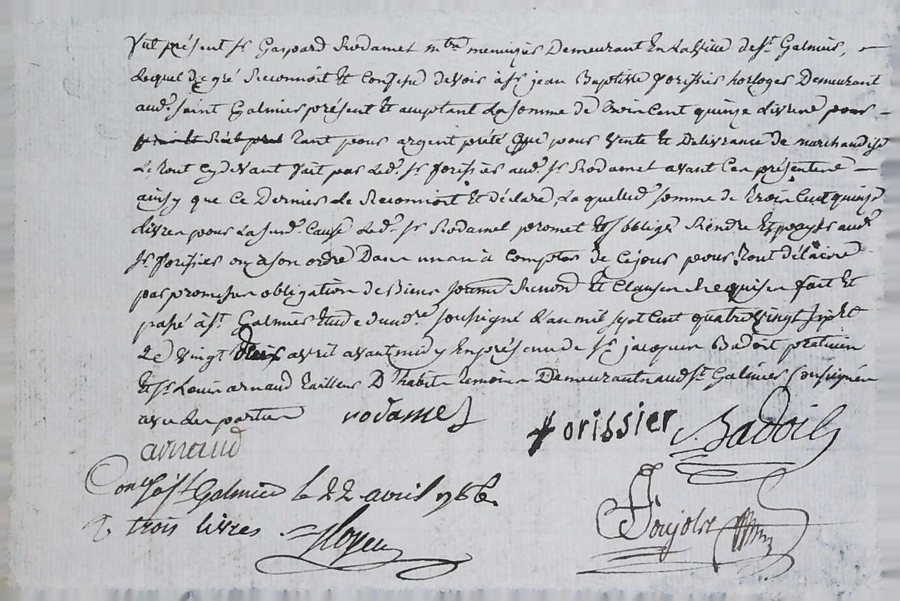 fut présent Sr Gaspard Rodamet mtre menuizier Demeurant En La Ville de St Galmier,
Lequel de gré Reconnoit Et Confesse devoir à Sr jean Baptiste forissier horloger Demeurant
aud. saint Galmier présent Et aceptant La somme de trois Cent quinze Livres pour
tant pour argent preté que pour Vente Et Delivrance de marchandise
Le tout cy devant fait par Led. Sr forissier aud. Sr Rodamet avant Ces présentes
ainsy que Ce Dernier Le Reconnoit Et déclare, La quelle d. somme de trois Cent quinze
Livres pour La sud. Cause Led. Sr Rodamet promet Et s'obliger Rendre Et payer aud.
Sr forissier ou a son ordre Dans un an à Compter de Ce jour pour tout délai
par promesse obligation de Biens soumis Renon Et Clauses Requises fait Et
passé à St Galmier Etude du nre soussigné L'an mil sept Cent quatre vingt six
Le vingt deux avril avant midy En présence de Sr jacques Badoit praticien
Et Sr Louis arnaud tailleur D'habits temoins Demeurant aud St Galmier soussignés
avec Les parties rodamet forissier Badoit
arnaud
Conlé à St Galmier le 22 avril 1786
R trois livres